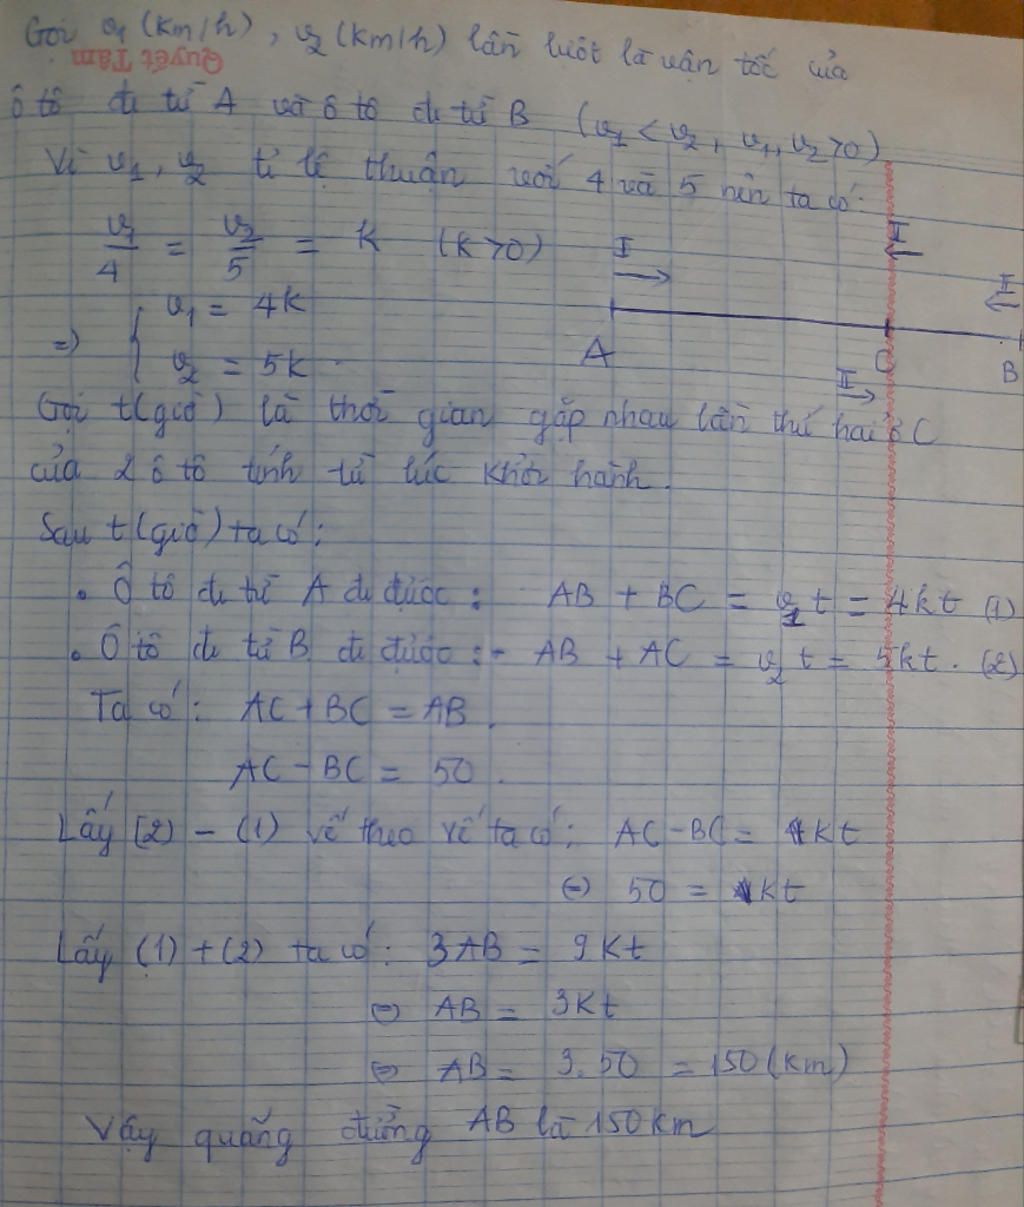 Gọi v₁ (km/h), v₂ (km/h) lần lượt là vận tốc của
Quyết Tâm
ô tô đi từ A và ô tô đi từ B (v₁ < v₂, v₁, v₂ > 0)
Vì v₁, v₂ tỉ lệ thuận với 4 và 5 nên ta có:
v₁/4 = v₂/5 = k (k > 0)
I
I
II
=> { v₁ = 4k
v₂ = 5k
A
C
B
II
Gọi t(giờ) là thời gian gặp nhau lần thứ hai ở C
của 2 ô tô tính từ lúc khởi hành.
Sau t(giờ) ta có:
. Ô tô đi từ A đi được: AB + BC = v₁t = 4kt (1)
. Ô tô đi từ B đi được: AB + AC = v₂t = 5kt. (2)
Ta có: AC + BC = AB.
AC - BC = 50.
Lấy (2) - (1) vế theo vế ta có: AC - BC = kt
⇔ 50 = kt
Lấy (1) + (2) ta có: 3AB = 9kt
⇔ AB = 3kt
⇔ AB = 3.50 = 150 (km)
Vậy quãng đường AB là 150km